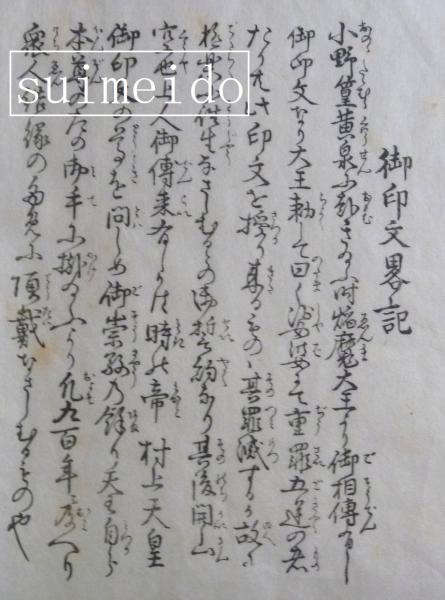 御印文畧記
小野篁黄泉に到きたまふ時焔魔大王より御相傳ありし
御印文なり大王勅して曰く娑婆にて重罪五逆の者
たりとも此印文を授り来るものハ其罪滅するが故に
極楽に往生なさしむるとの御誓約なり其後開山
空也上人御傳来有しより時の帝 村上天皇
御印文の を問しめ御崇敬の餘り天王自ら
本尊の左の御手に掛のふより凡九百年に及へり
衆人結縁の為に頂戴なさしむるものや
suimeido